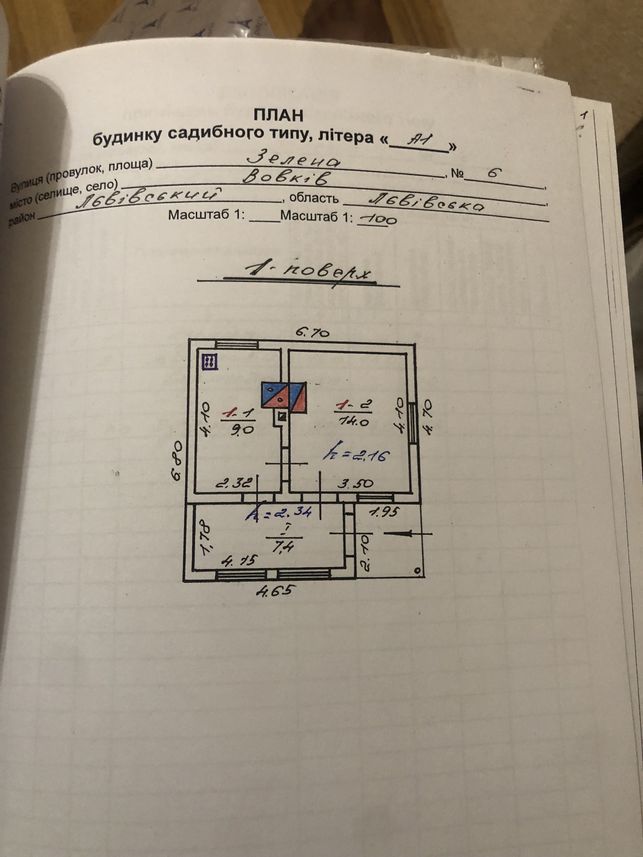 ПЛАН
будинку садибного типу, літера « А1 »
Вулиця (провулок, площа) Зелена, № 6,
місто (селище, село) Вовків,
район Львівський, область Львівська
Масштаб 1: ____Масштаб 1: 100
1- поверх
6.70
1-1
9.0
4.10
1-2
14.0
4.10
4.70
6.80
h=2.16
2.32
3.50
h=2.34
1.95
1.78
I
7,4
2.10
4.15
4.65